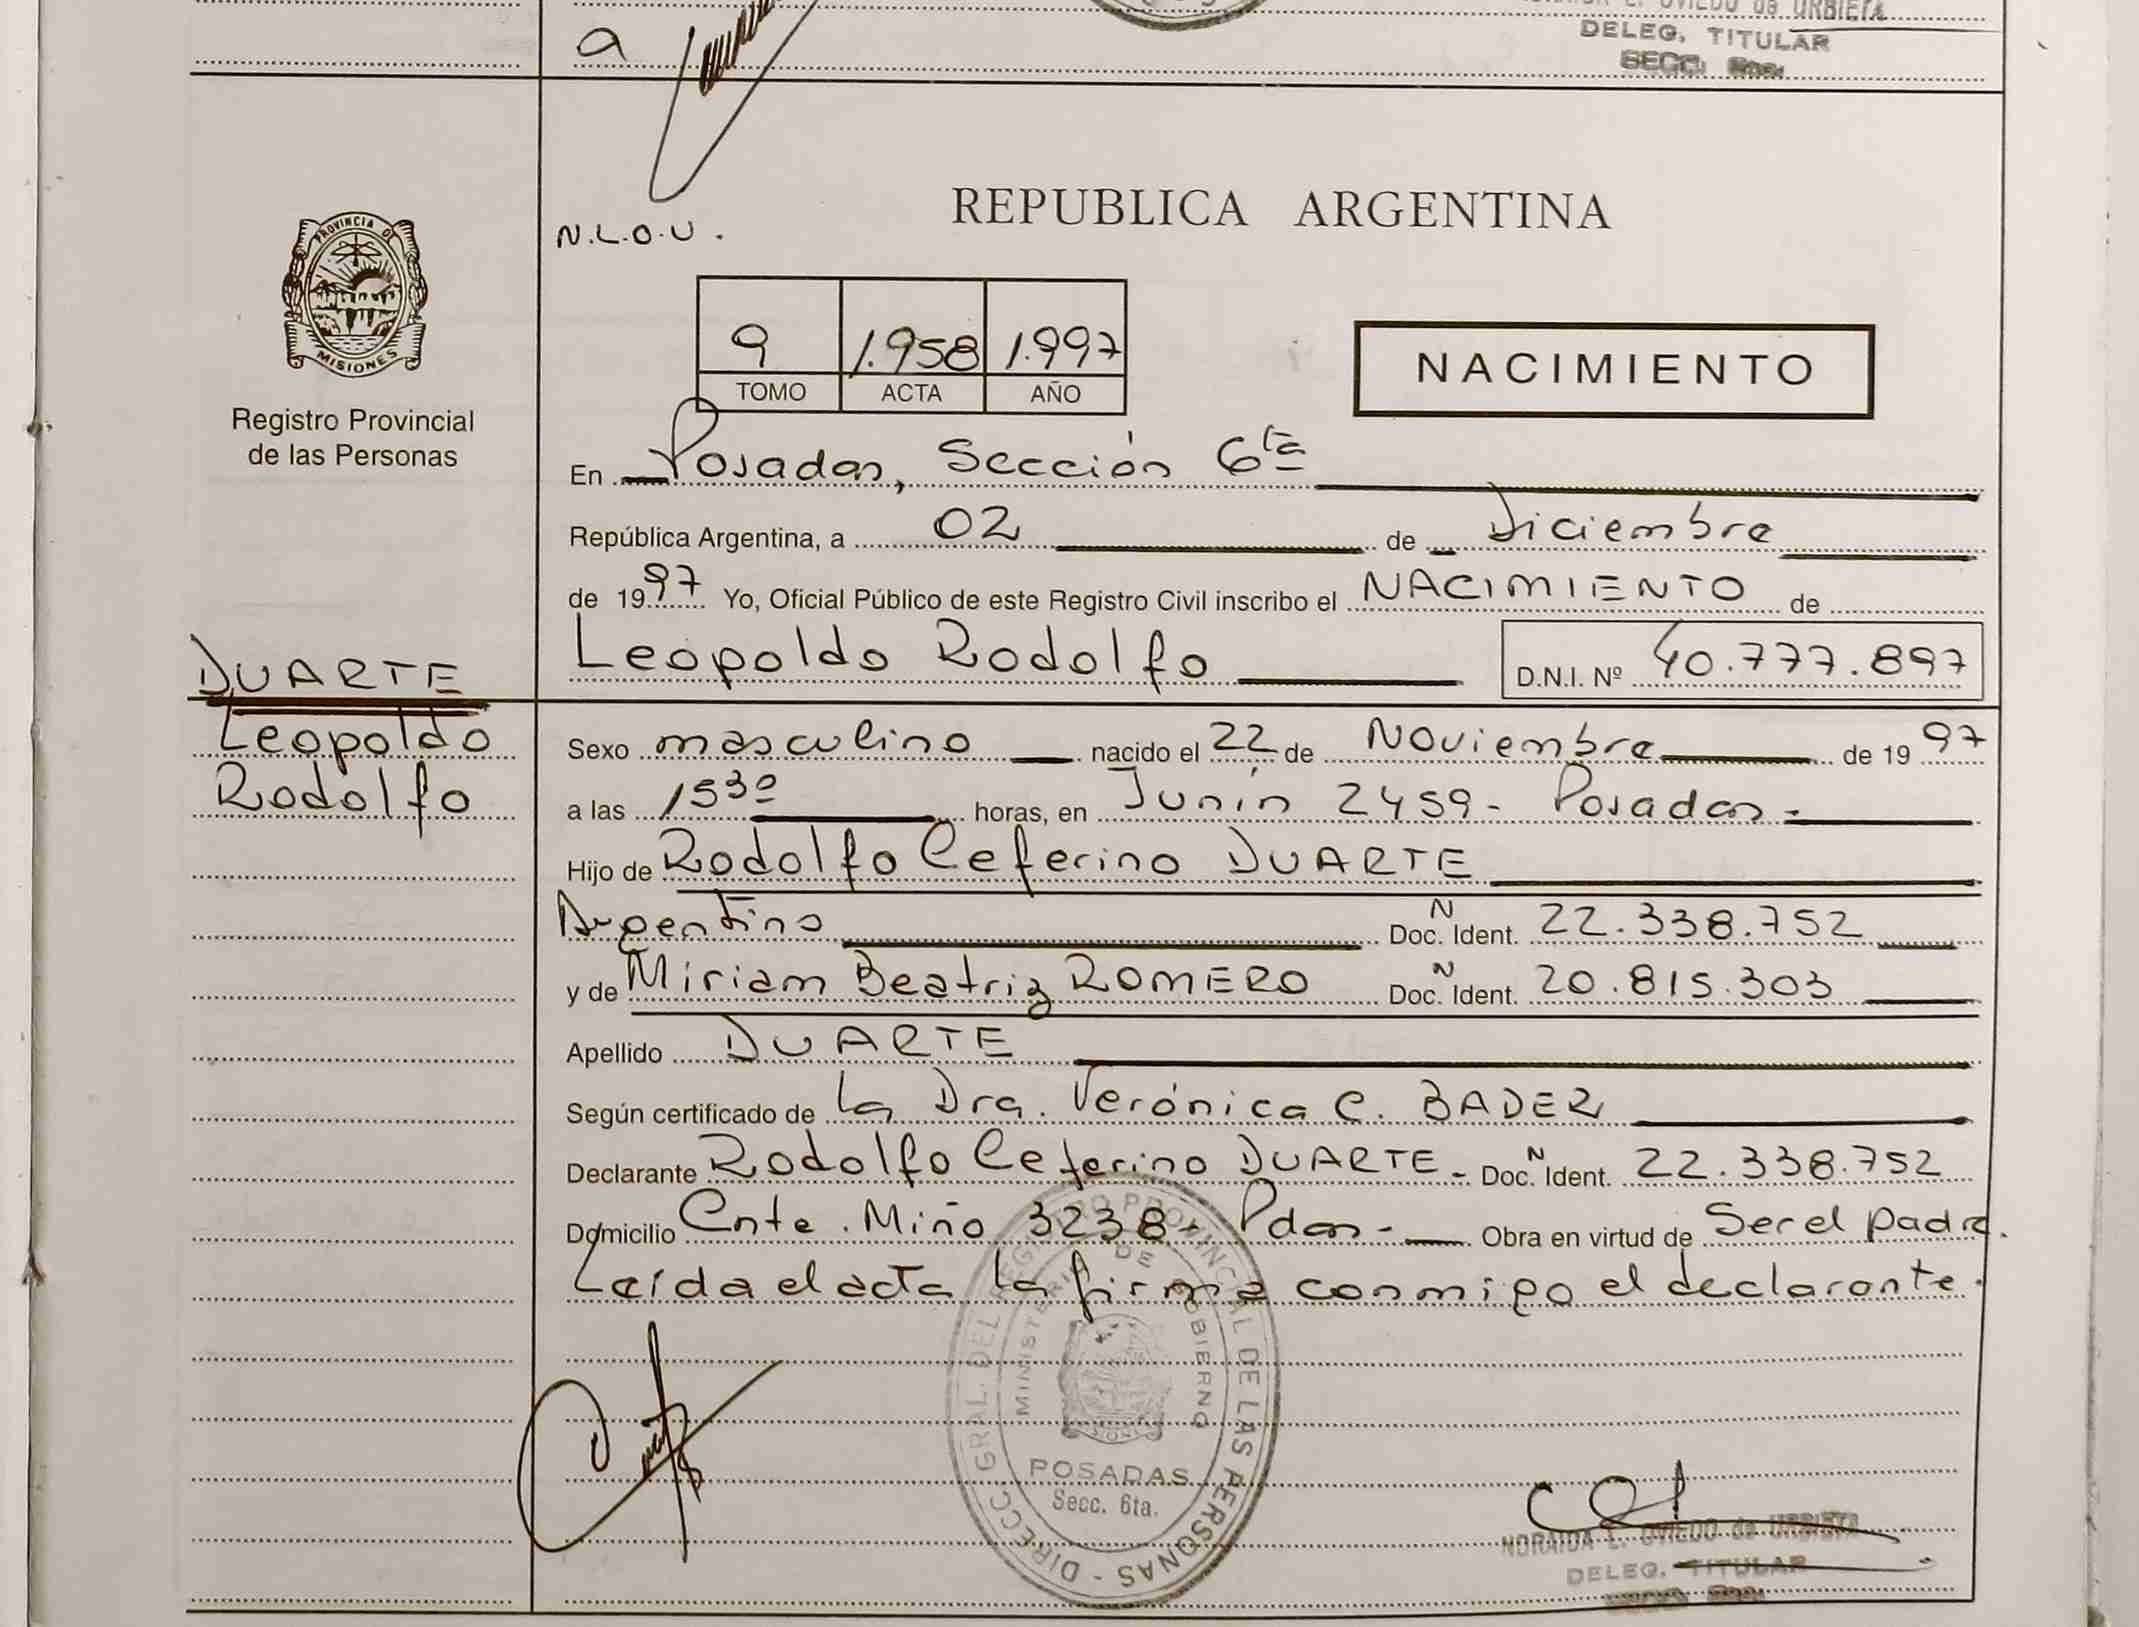 NORAIDA L. OVIEDO de URBIETA
DELEG. TITULAR
SECC. 6ta.
a
PROVINCIA DE
MISIONES
Registro Provincial
de las Personas
N.L.O.U.
REPUBLICA ARGENTINA
9 1.958 1.997
TOMO ACTA AÑO
NACIMIENTO
En Posadas, Sección 6ta
República Argentina, a 02 de Diciembre
de 1997 Yo, Oficial Público de este Registro Civil inscribo el NACIMIENTO de
Leopoldo Rodolfo D.N.I. Nº 40.777.897
DUARTE
Leopoldo
Rodolfo
Sexo masculino nacido el 22 de Noviembre de 1997
a las 1530 horas, en Junín 2459- Posadas-
Hijo de Rodolfo Ceferino DUARTE
Argentino Doc. N Ident. 22.338.752
y de Miriam Beatriz ROMERO Doc. N Ident. 20.815.303
Apellido DUARTE
Según certificado de la Dra. Verónica C. BADER
Declarante Rodolfo Ceferino DUARTE- Doc. N Ident. 22.338.752
Domicilio Cnte. Miño 3238- Pdas- Obra en virtud de Ser el padre.
Leída el acta la firma conmigo el declarante.
DIRECC. GRAL. DEL REGISTRO PROVINCIAL DE LAS PERSONAS -
MINISTERIO DE GOBIERNO
POSADAS
Secc. 6ta.
NORAIDA L. OVIEDO de URBIETA
DELEG. TITULAR